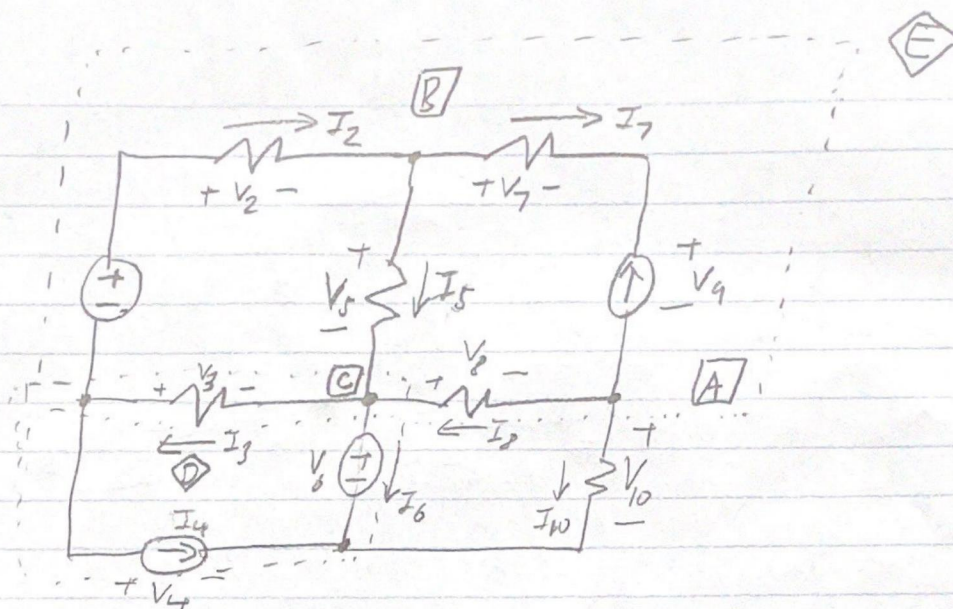 E
B
I2 I7
+ V2 - + V7 -
+ - + V5 - I5 + V9 -
+ V3 - C + V8 - A
I3 I8
D V6 + - I6 I10 + V10 -
I4
+ V4 -